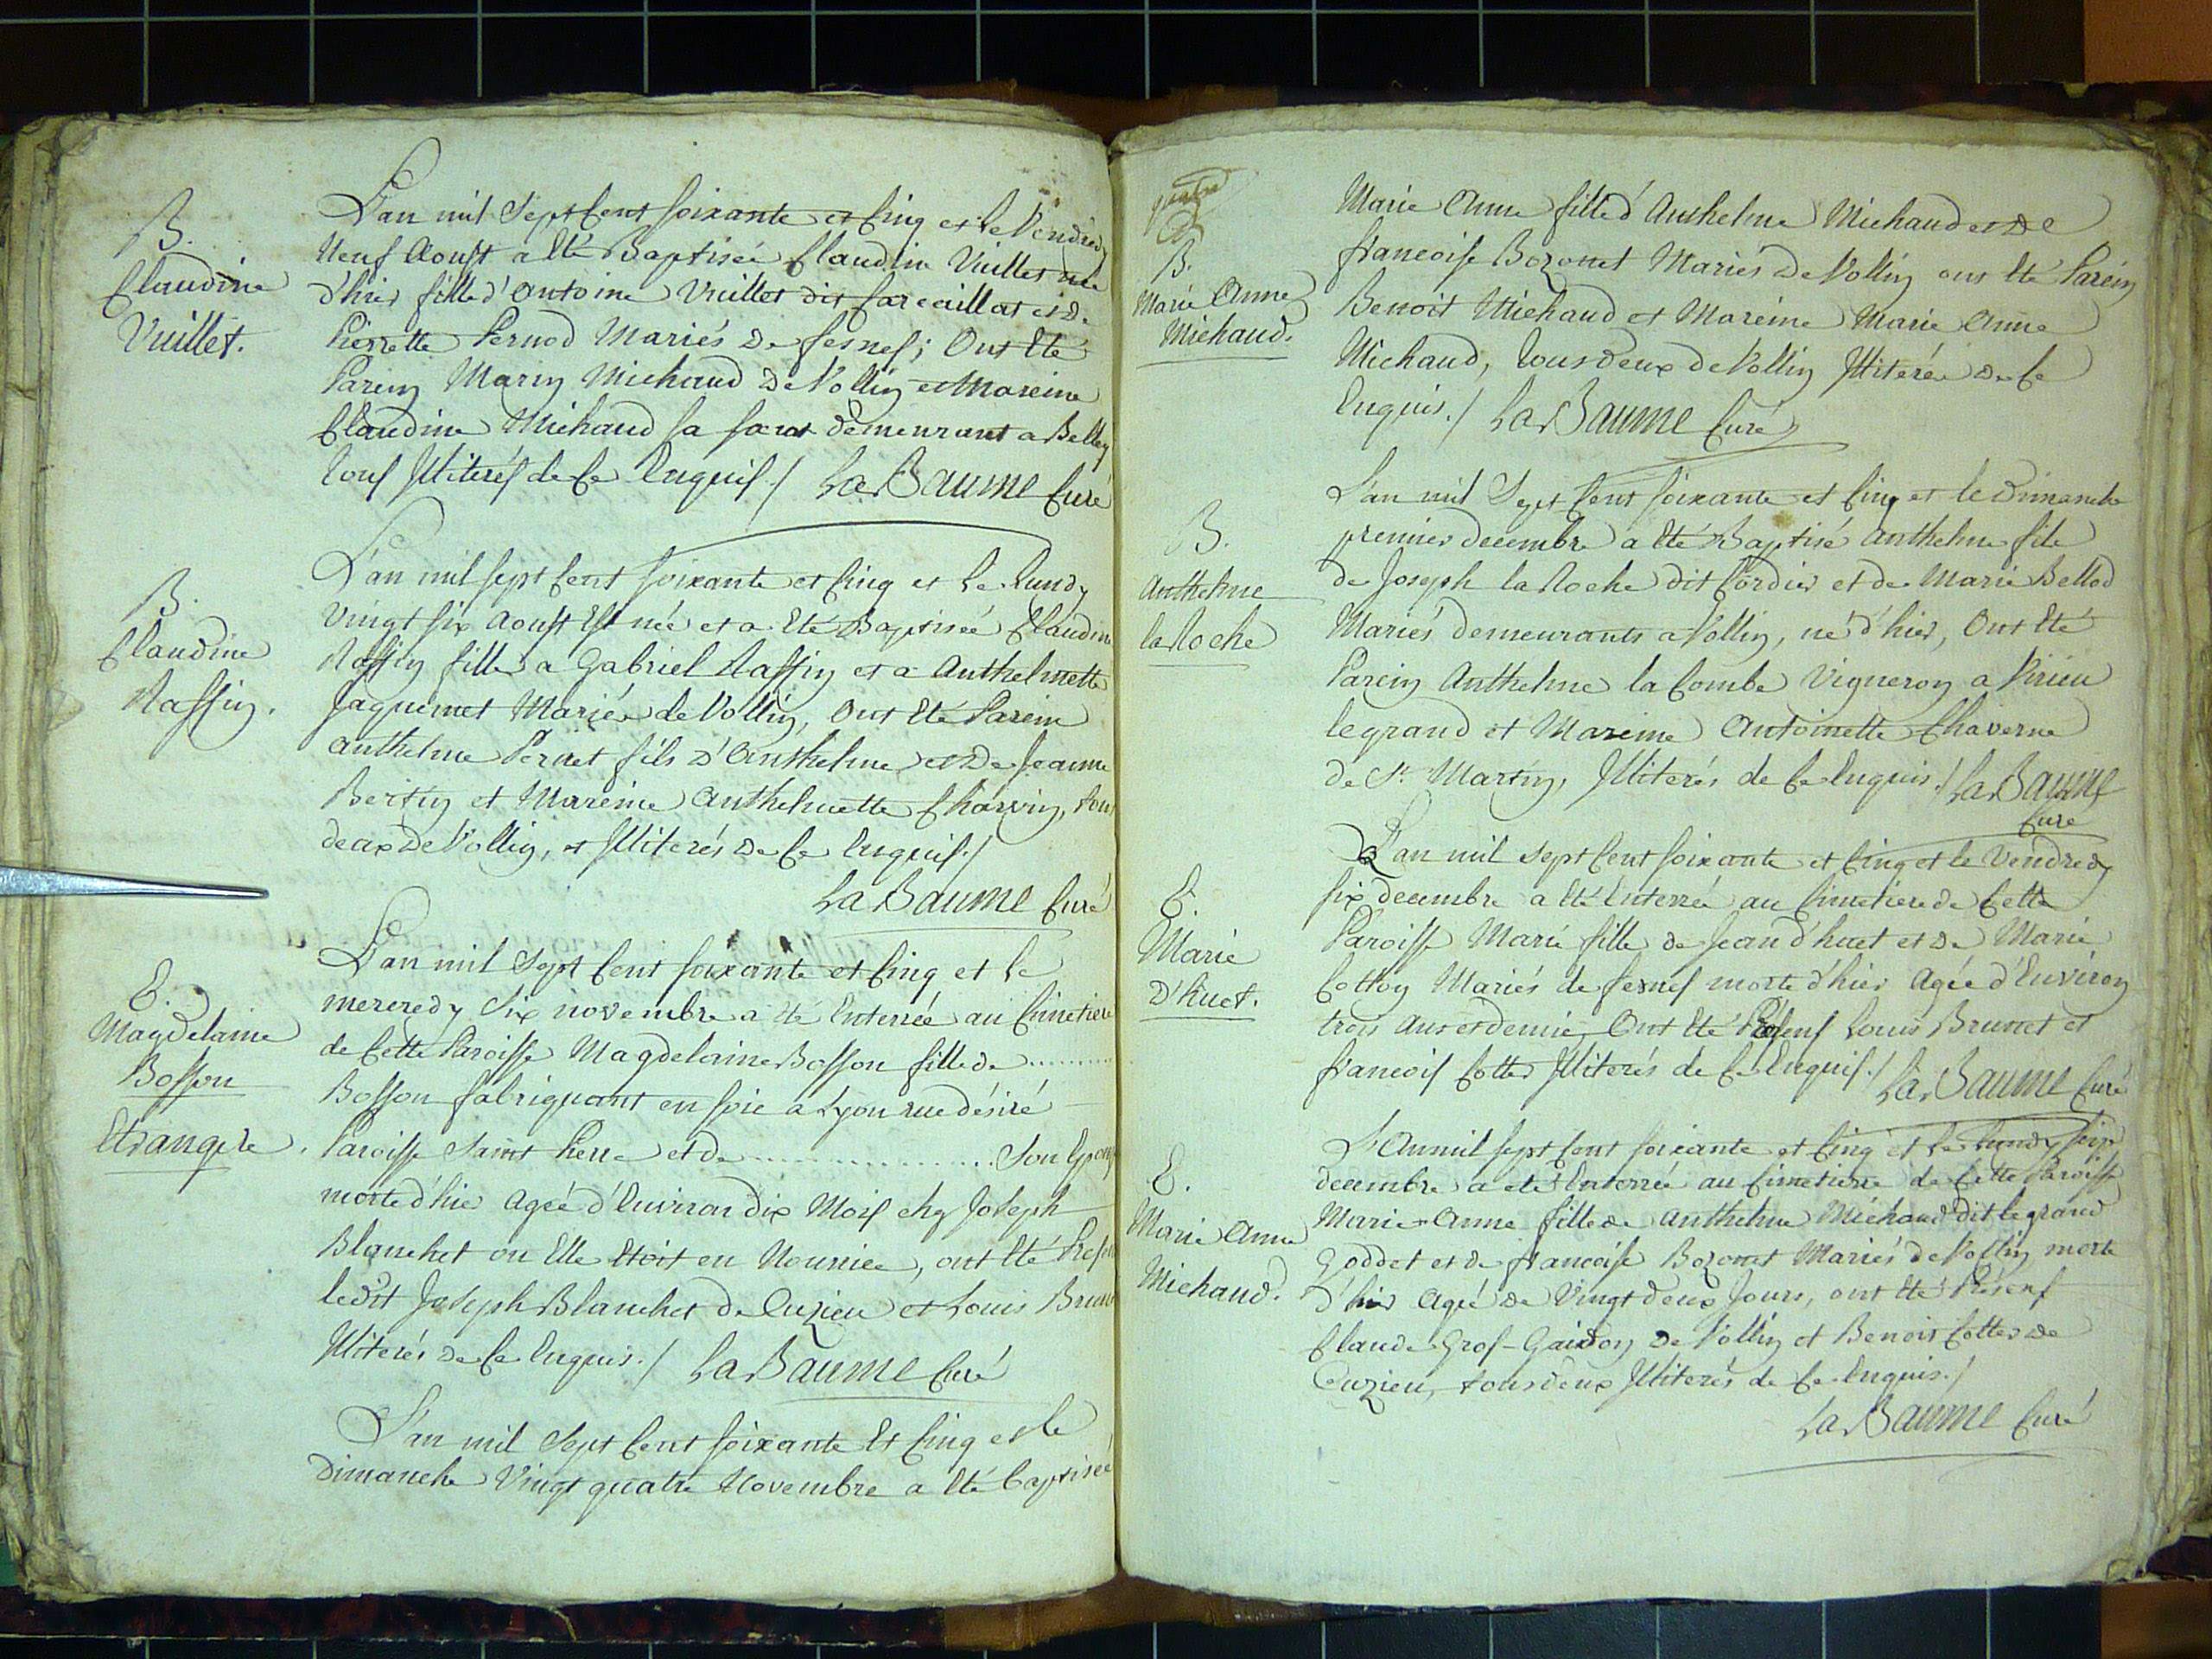 B.
Claudine
Vuillet.
L'an mil Sept Cent soixante et Cinq et le Vendredy
Neuf Aoust a Eté Baptisée Claudine Vuillet née
d'hier fille d'Antoine Vuillet dit
Pierrette Pernod Mariés de Fesnes; Ont Eté
Parein Marin Michaud de Vollin et Mareine
Claudine Michaud sa soeur demeurant a Belley
tous Illiterés de Ce Enquis./ La Baume Curé
B.
Claudine
Raffin.
L'an mil sept Cent soixante et Cinq et le Lundy
Vingt six Aoust Est née et a Eté Baptisée Claudine
Raffin fille a Gabriel Raffin et a Anthelmette
Jaquemet Mariés de Vollin, Ont Eté Parein
Anthelme Pernet fils d'Anthelme et de Jeanne
Bertin et Mareine Anthelmette Charvin, tous
deux de Vollin, et Illiterés de Ce Enquis./
La Baume Curé
E.
Magdelaine
Bosson
Etrangere.
L'an mil Sept Cent soixante et Cinq et le
mercredy Six novembre a été Enterrée au Cimetiere
de Cette Paroisse Magdelaine Bosson fille de ..........
Bosson fabriquant en soie a Lyon rue désiré
Paroisse Saint Pierre et de ................ Son Epouse
morte d'hier Agée d'Environ dix Mois chez Joseph
Blanchet ou Elle Etoit en Nourice, ont Eté Presens
ledit Joseph Blanchet de Cuzieu et Louis Brunet
Illiterés de Ce Enquis./ La Baume Curé
L'an mil Sept Cent soixante Et Cinq et le
Dimanche Vingt quatre Novembre a Eté Baptisée
B.
Marie Anne
Michaud.
Marie Anne fille d'Anthelme Michaud et de
francoise Bozonet Mariés de Vollin ont Eté Parein
Benoit Michaud et Mareine Marie Anne
Michaud, tous deux de Vollin Illiterés de Ce
Enquis./ La Baume Curé
B.
Anthelme
la Roche
L'an mil Sept Cent soixante et Cinq et le Dimanche
premier decembre a Eté Baptisé Anthelme fils
de Joseph la Roche dit Cordier et de Marie Bellod
Mariés demeurants a Vollin, né d'hier, Ont Eté
Parein Anthelme la Combe Vigneron a Virieu
le grand et Mareine Antoinette Chaverne
de St Martin, Illiterés de Ce Enquis./ La Baume
Curé
E.
Marie
D'huet.
L'an mil sept Cent soixante et Cinq et le Vendredy
six decembre a Eté Enterrée au Cimetiere de Cette
Paroisse Marie fille de Jean d'huet et de Marie
Cottoy Mariés de fesnes morte d'hier Agée d'Environ
trois Ans et demie, Ont Eté Présens Louis Brunet et
francois Cottes Illiterés de Ce Enquis./ La Baume Curé
E.
Marie Anne
Michaud.
L'An mil sept Cent soixante et Cinq et le Lundy seize
decembre a eté Enterrée au Cimetiere de Cette Paroisse
Marie-Anne fille de Anthelme Michaud dit le grand
Goddet et de francoise Bozonet Mariés de Vollin morte
d'hier Agée de Vingt deux Jours, ont Eté Présens
Claude Gros-Gaidon de Vollin et Benoit Cottes de
Cuzieu, tous deux Illiterés de Ce Enquis./
La Baume Curé